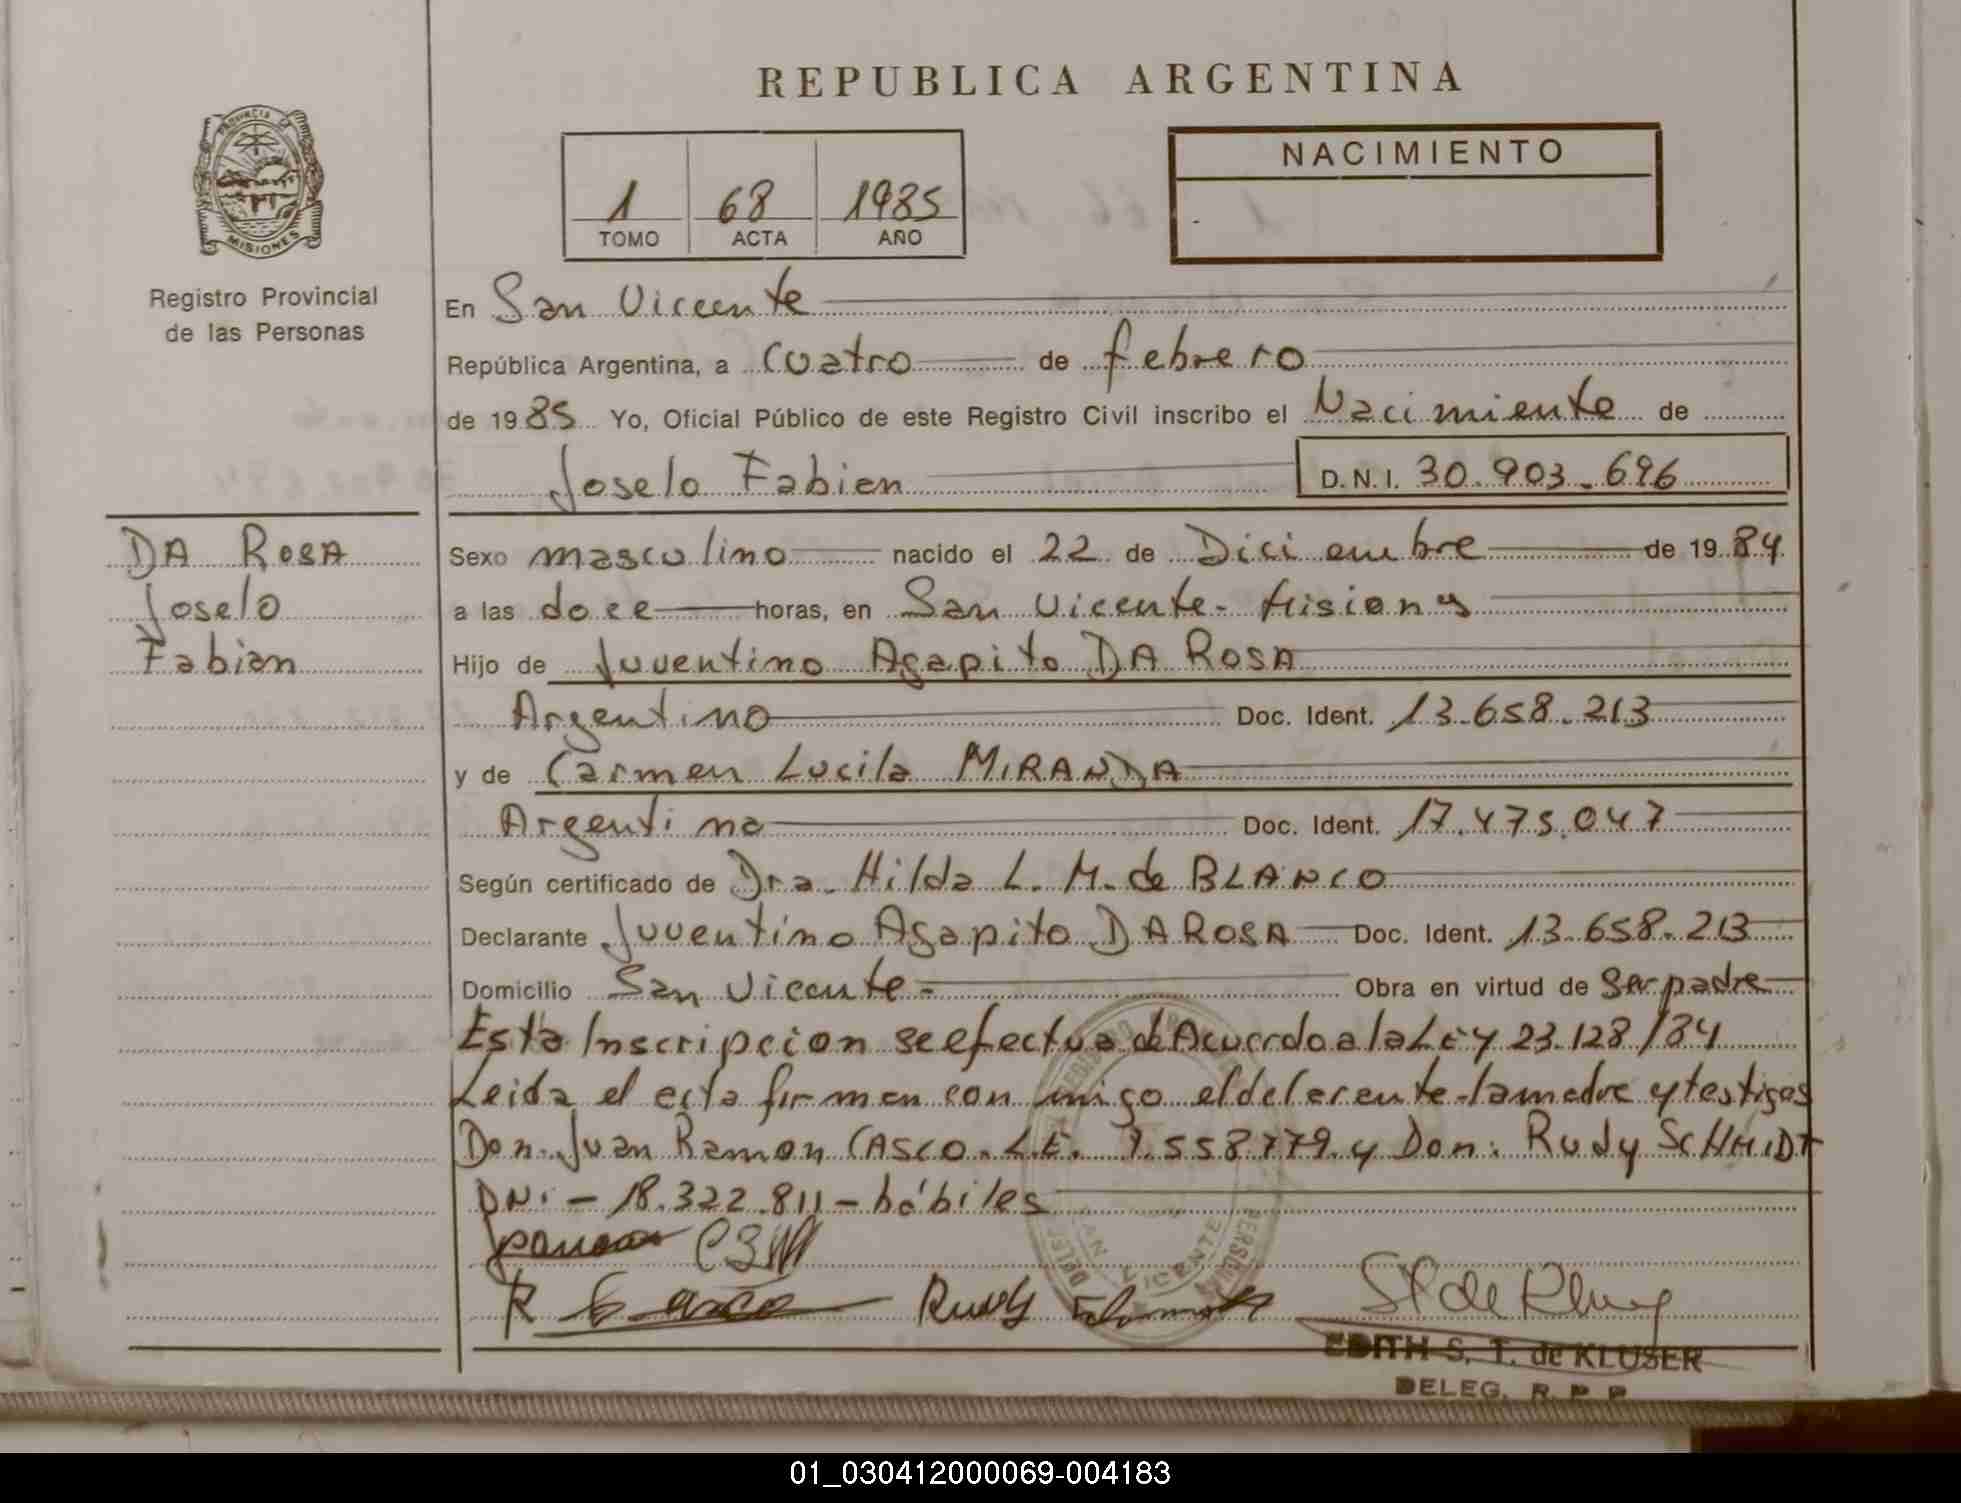 REPUBLICA ARGENTINA
PROVINCIA
MISIONES
Registro Provincial
de las Personas
1 68 1985
TOMO ACTA AÑO
NACIMIENTO
En San Vicente
República Argentina, a Cuatro de febrero
de 1985 Yo, Oficial Público de este Registro Civil inscribo el Nacimiento de
Joselo Fabian D.N.I. 30.903.696
DA ROSA
Joselo
Fabian
Sexo masculino nacido el 22 de Diciembre de 1984
a las doce horas, en San Vicente - Misiones
Hijo de Juventino Agapito DA ROSA
Argentino Doc. Ident. 13.658.213
y de Carmen Lucila MIRANDA
Argentina Doc. Ident. 17.475.047
Según certificado de Dra. Hilda L. M. de BLANCO
Declarante Juventino Agapito DA ROSA Doc. Ident. 13.658.213
Domicilio San Vicente - Obra en virtud de Ser padre
Esta Inscripcion se efectua de Acuerdo a la Ley 23.128/84
Leida el acta firman con migo el delerente - la madre y testigos
Don. Juan Ramon CASCO. L.E. 7.558.779 y Don. Rudy SCHMIDT
DNi - 18.322.811 - hábiles
Rudy
EDITH S. T. de KLUSER
DELEG. R. P. P.
01_030412000069-004183